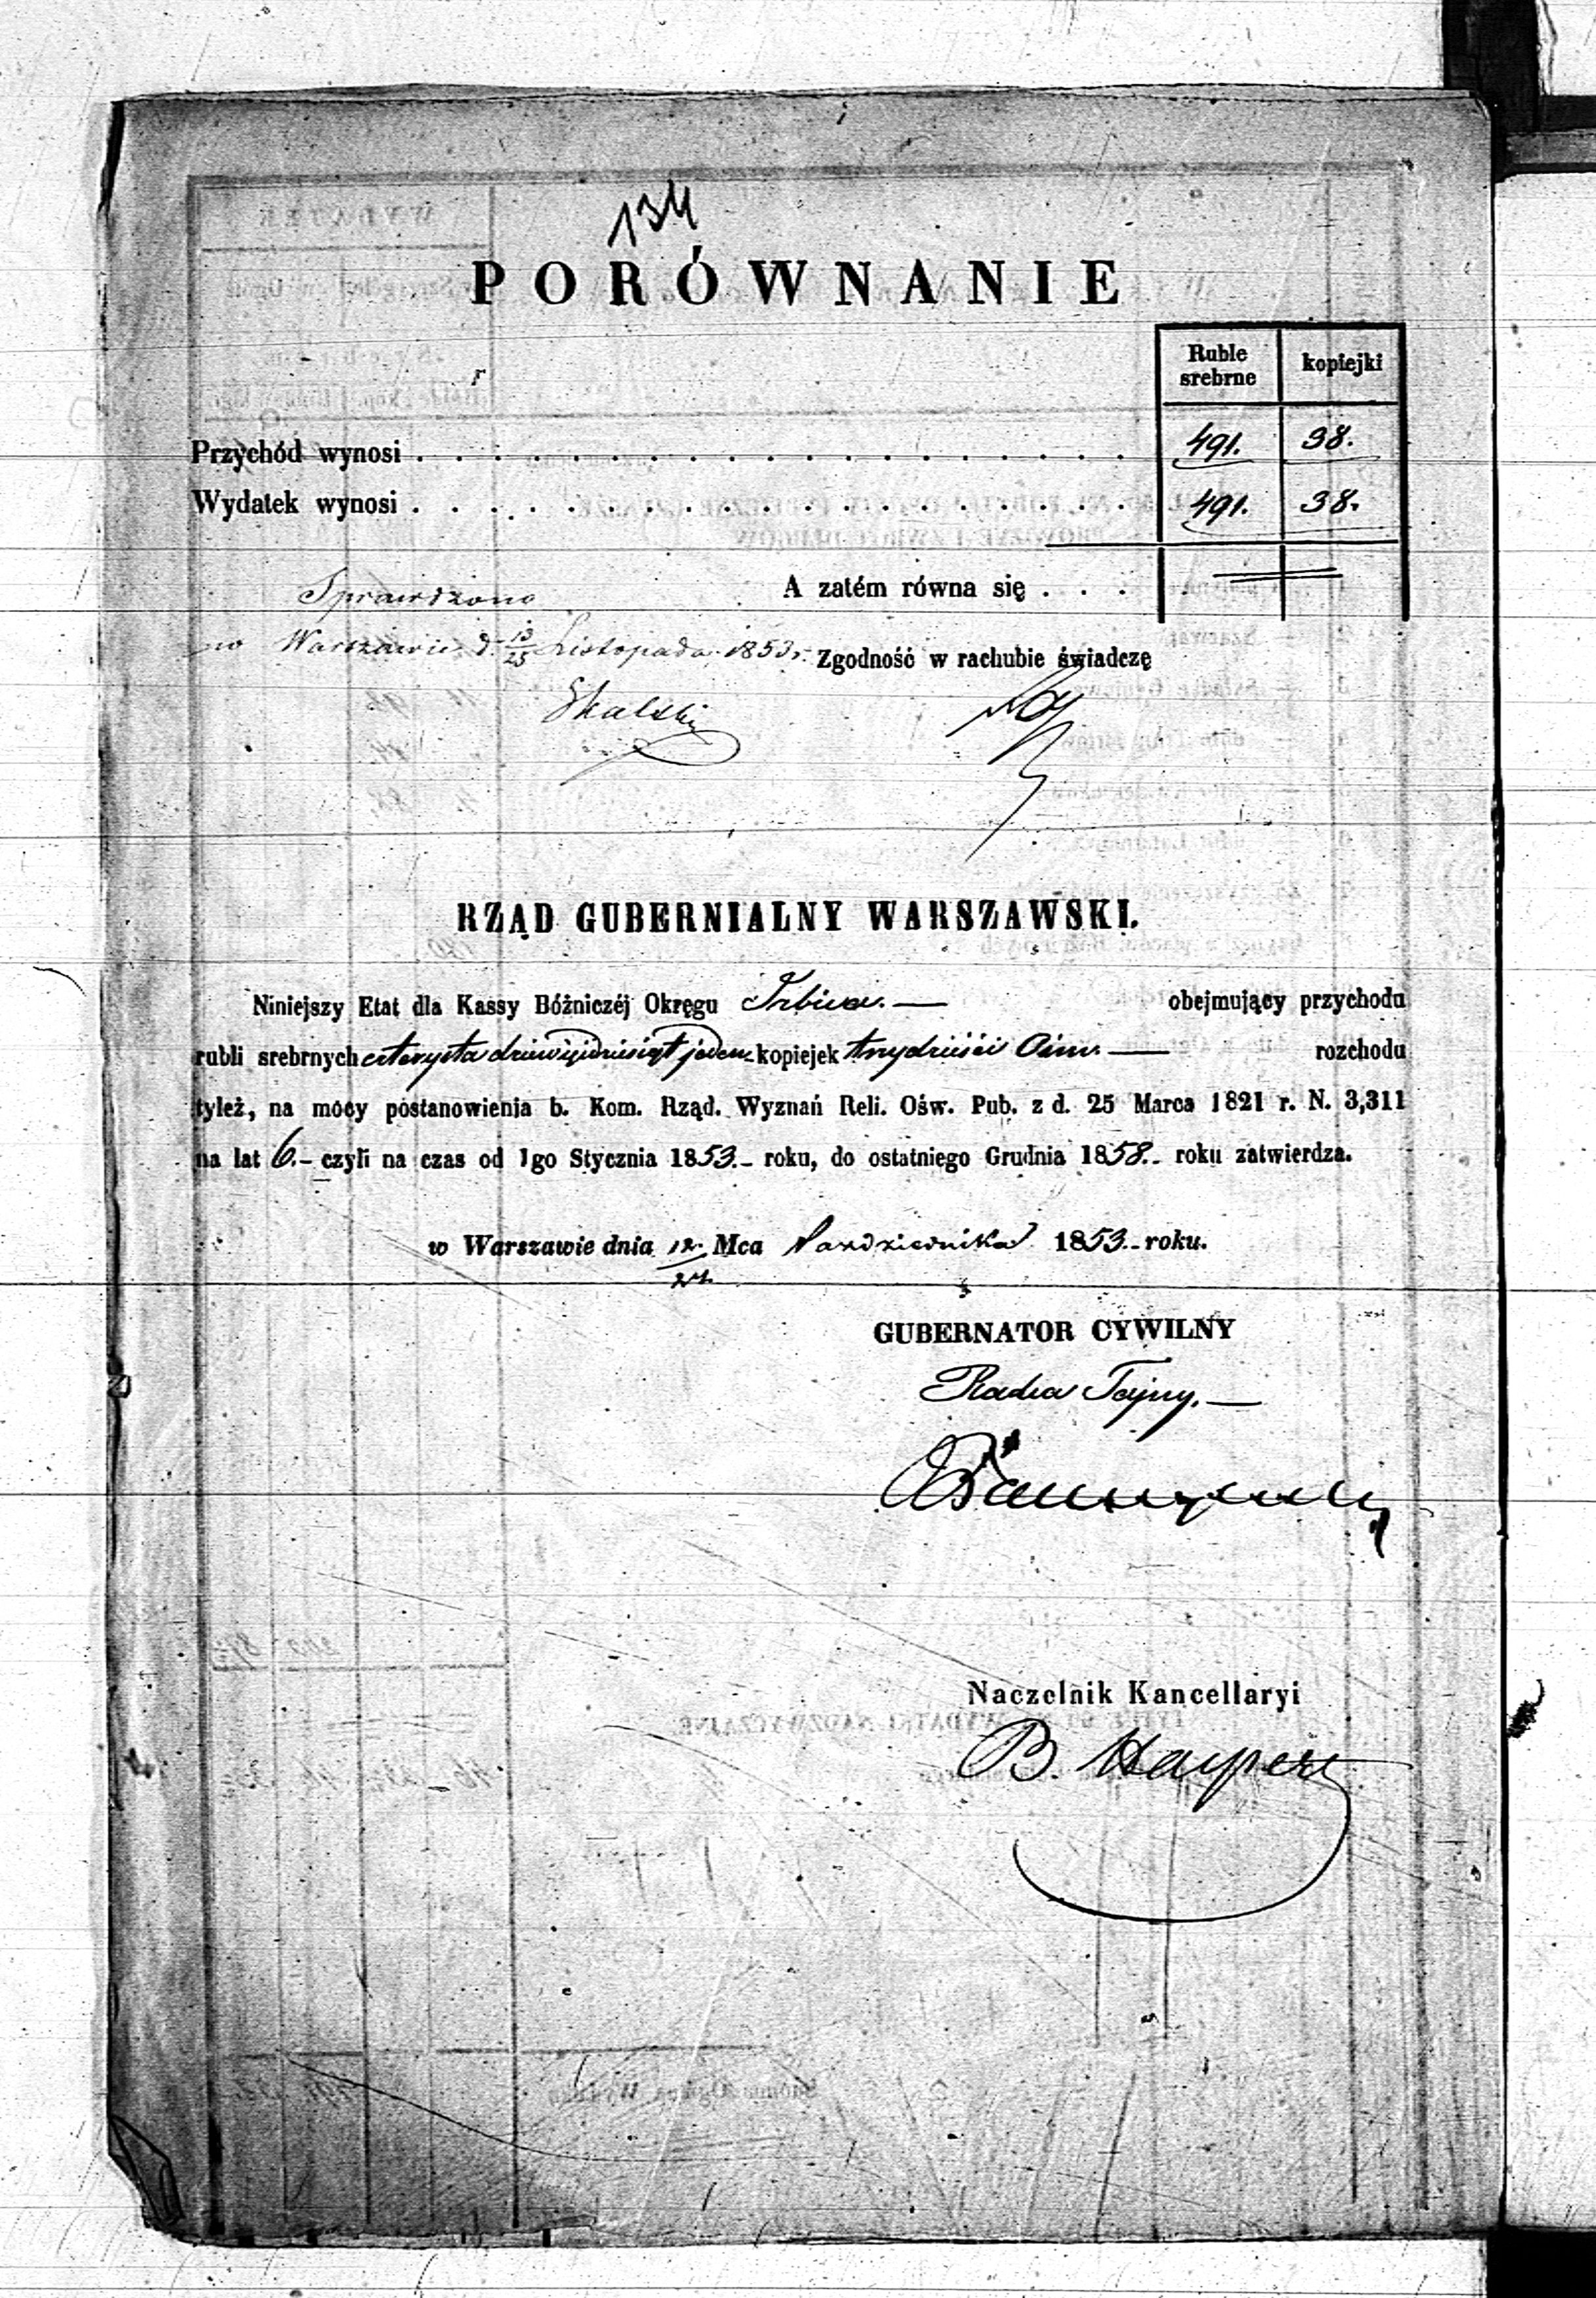 134
PORÓWNANIE
Ruble srebrne kopiejki
Przychód wynosi . . . . . . . . . . . . . . . . . . . 491. 38.
Wydatek wynosi . . . . . . . . . . . . . . . . . . . 491. 38.
A zatém równa się . . .
Sprawdzono
w Warszawie d. 13/25 Listopada 1853.
Zgodność w rachubie świadczę
Skalski
RZĄD GUBERNIALNY WARSZAWSKI.
Niniejszy Etat dla Kassy Bóżniczéj Okręgu Izbica. — obejmujący przychodu
rubli srebrnych czterysta dziewięćdziesiąt jeden kopiejek trzydzieści Ośm. — rozchodu
tyleż, na mocy postanowienia b. Kom. Rząd. Wyznań Reli. Ośw. Pub. z d. 25 Marca 1821 r. N. 3,311
na lat 6.- czyli na czas od 1go Stycznia 1853.- roku, do ostatniego Grudnia 1858.- roku zatwierdza.
w Warszawie dnia 12/24 Mca Października 1853.- roku.
GUBERNATOR CYWILNY
Radca Tajny. —
Naczelnik Kancellaryi
B. Halpert